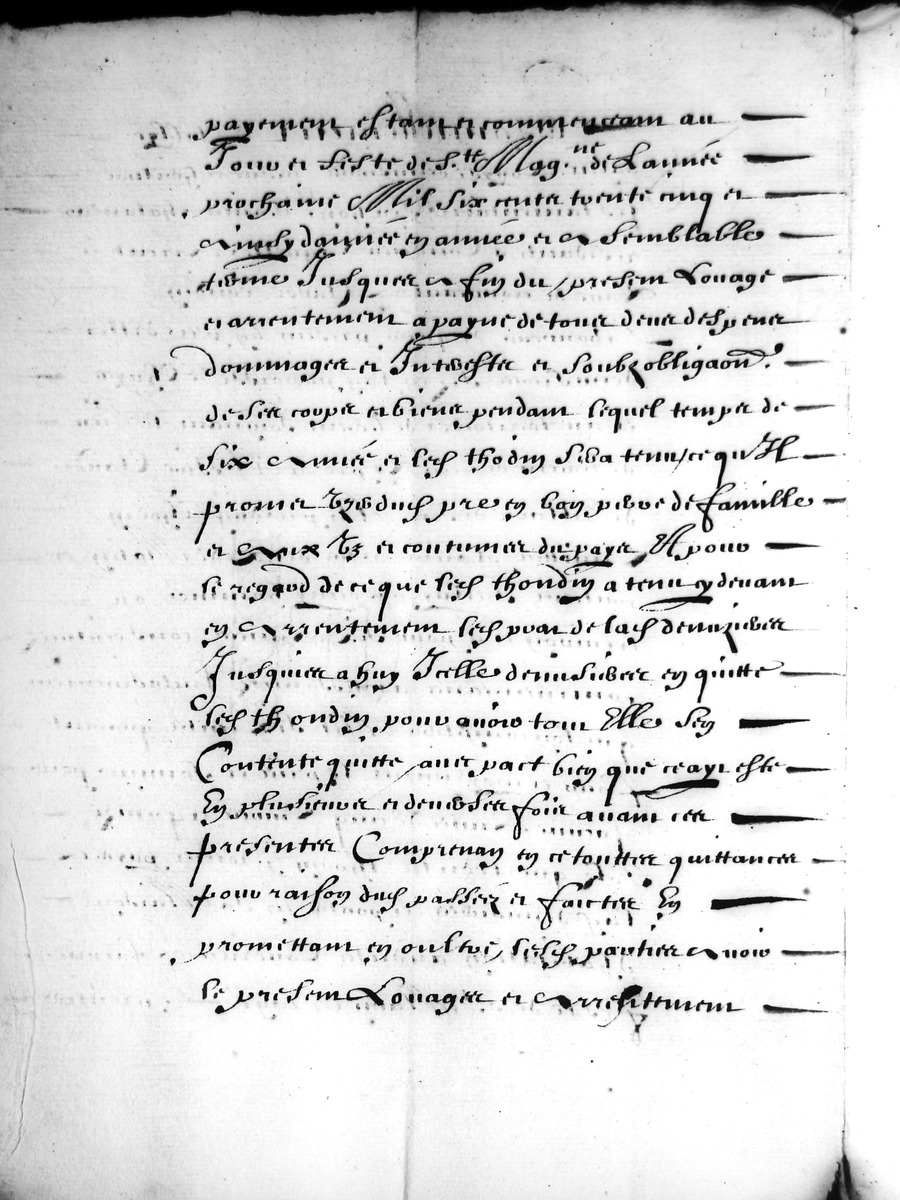 payement estant et commenceant au
Jour et feste de s.te Mag.ne de Lannée
prochaine Mil six centz trente cinq et
Ainsy dannée en année et A semblable
terme Jusques A fin du present Louage
et arrentement a payne de tous deux despens
dommages et Interestz et soubz obligaon
de ses corps et biens pendant lequel temps de
six Année et led thodin sera tenu ce qu Il
promet du pre en bon pere de famille
et Aux Us et coutumes du pays Et pour
le regard de ce que led thondin a tenu cy devant
en Arrentement led de lad
Jusques a huy Icelle en quitte
led thondin pour avoir tout Elle sen
Contente quitte avec pact bien que ce aye este
En plusieurs et diverses fois avant ces
presentes Comprenan en ce touttes quittances
pour raison dud passées et faictes En
promettant en oultre lesd parties Avoir
le present Louages et Arrentement